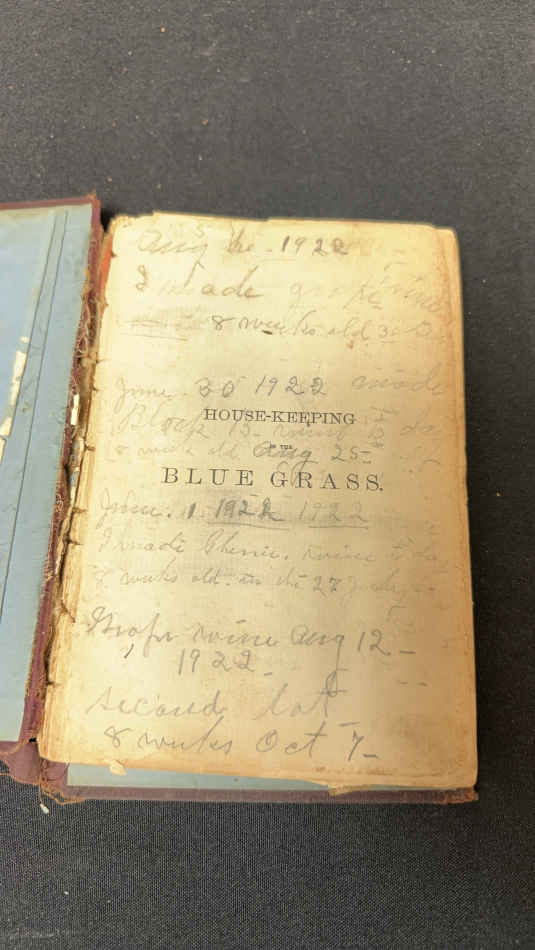 Aug 1922
I made grape wine
8 weeks old 30
June. 30 1922 made
HOUSE-KEEPING
wine
IN THE
old Aug 25
BLUE GRASS.
June. 1 1922 1922
I made wine to day
8 weeks old. on the 27 July
Grape wine Aug 12-
1922-
second lot
8 weeks Oct 7-